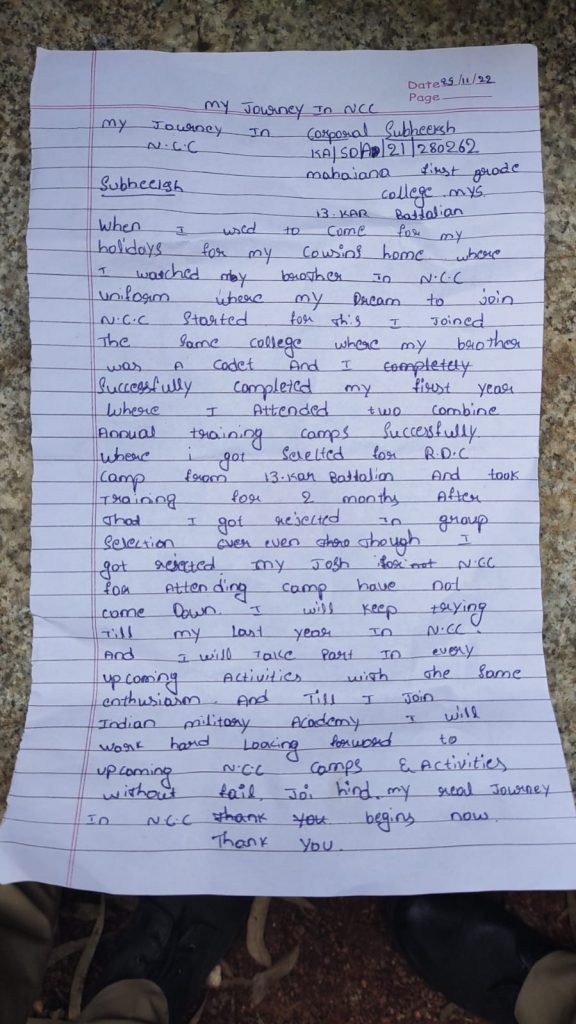 Date 25/11/22
Page
My Journey In NCC
My Journey In Corporal Subheersh
N.C.C KA/SDA/21/280262
mahajana first grade
Subheersh college mys.
13.KAR Battalian
When I used to come for my
holidays for my cousins home where
I watched my brother In N.C.C
uniform where my Dream to join
N.C.C Started for this I Joined
The Same college where my brother
was A Cadet And I completely
Successfully completed my first year
Where I Attended two combine
Annual training camps Successfully.
where i got Selelted for R.D.C
camp from 13.KAR Battalion And took
Training for 2 months After
That I got rejected In group
Selection even though I
got rejected my Josh for not N.CC
for Attending camp have not
come Down. I will keep trying
Till my Last year In N.C.C.
And I will Take Part In every
upcoming Activities with the Same
enthusiasm. And Till I Join
Indian military Academy I will
work hard Looking forword to
upcoming N.C.C camps & Activities
without fail. Jai hind. my real Journey
In N.C.C thank you begins now.
Thank you.